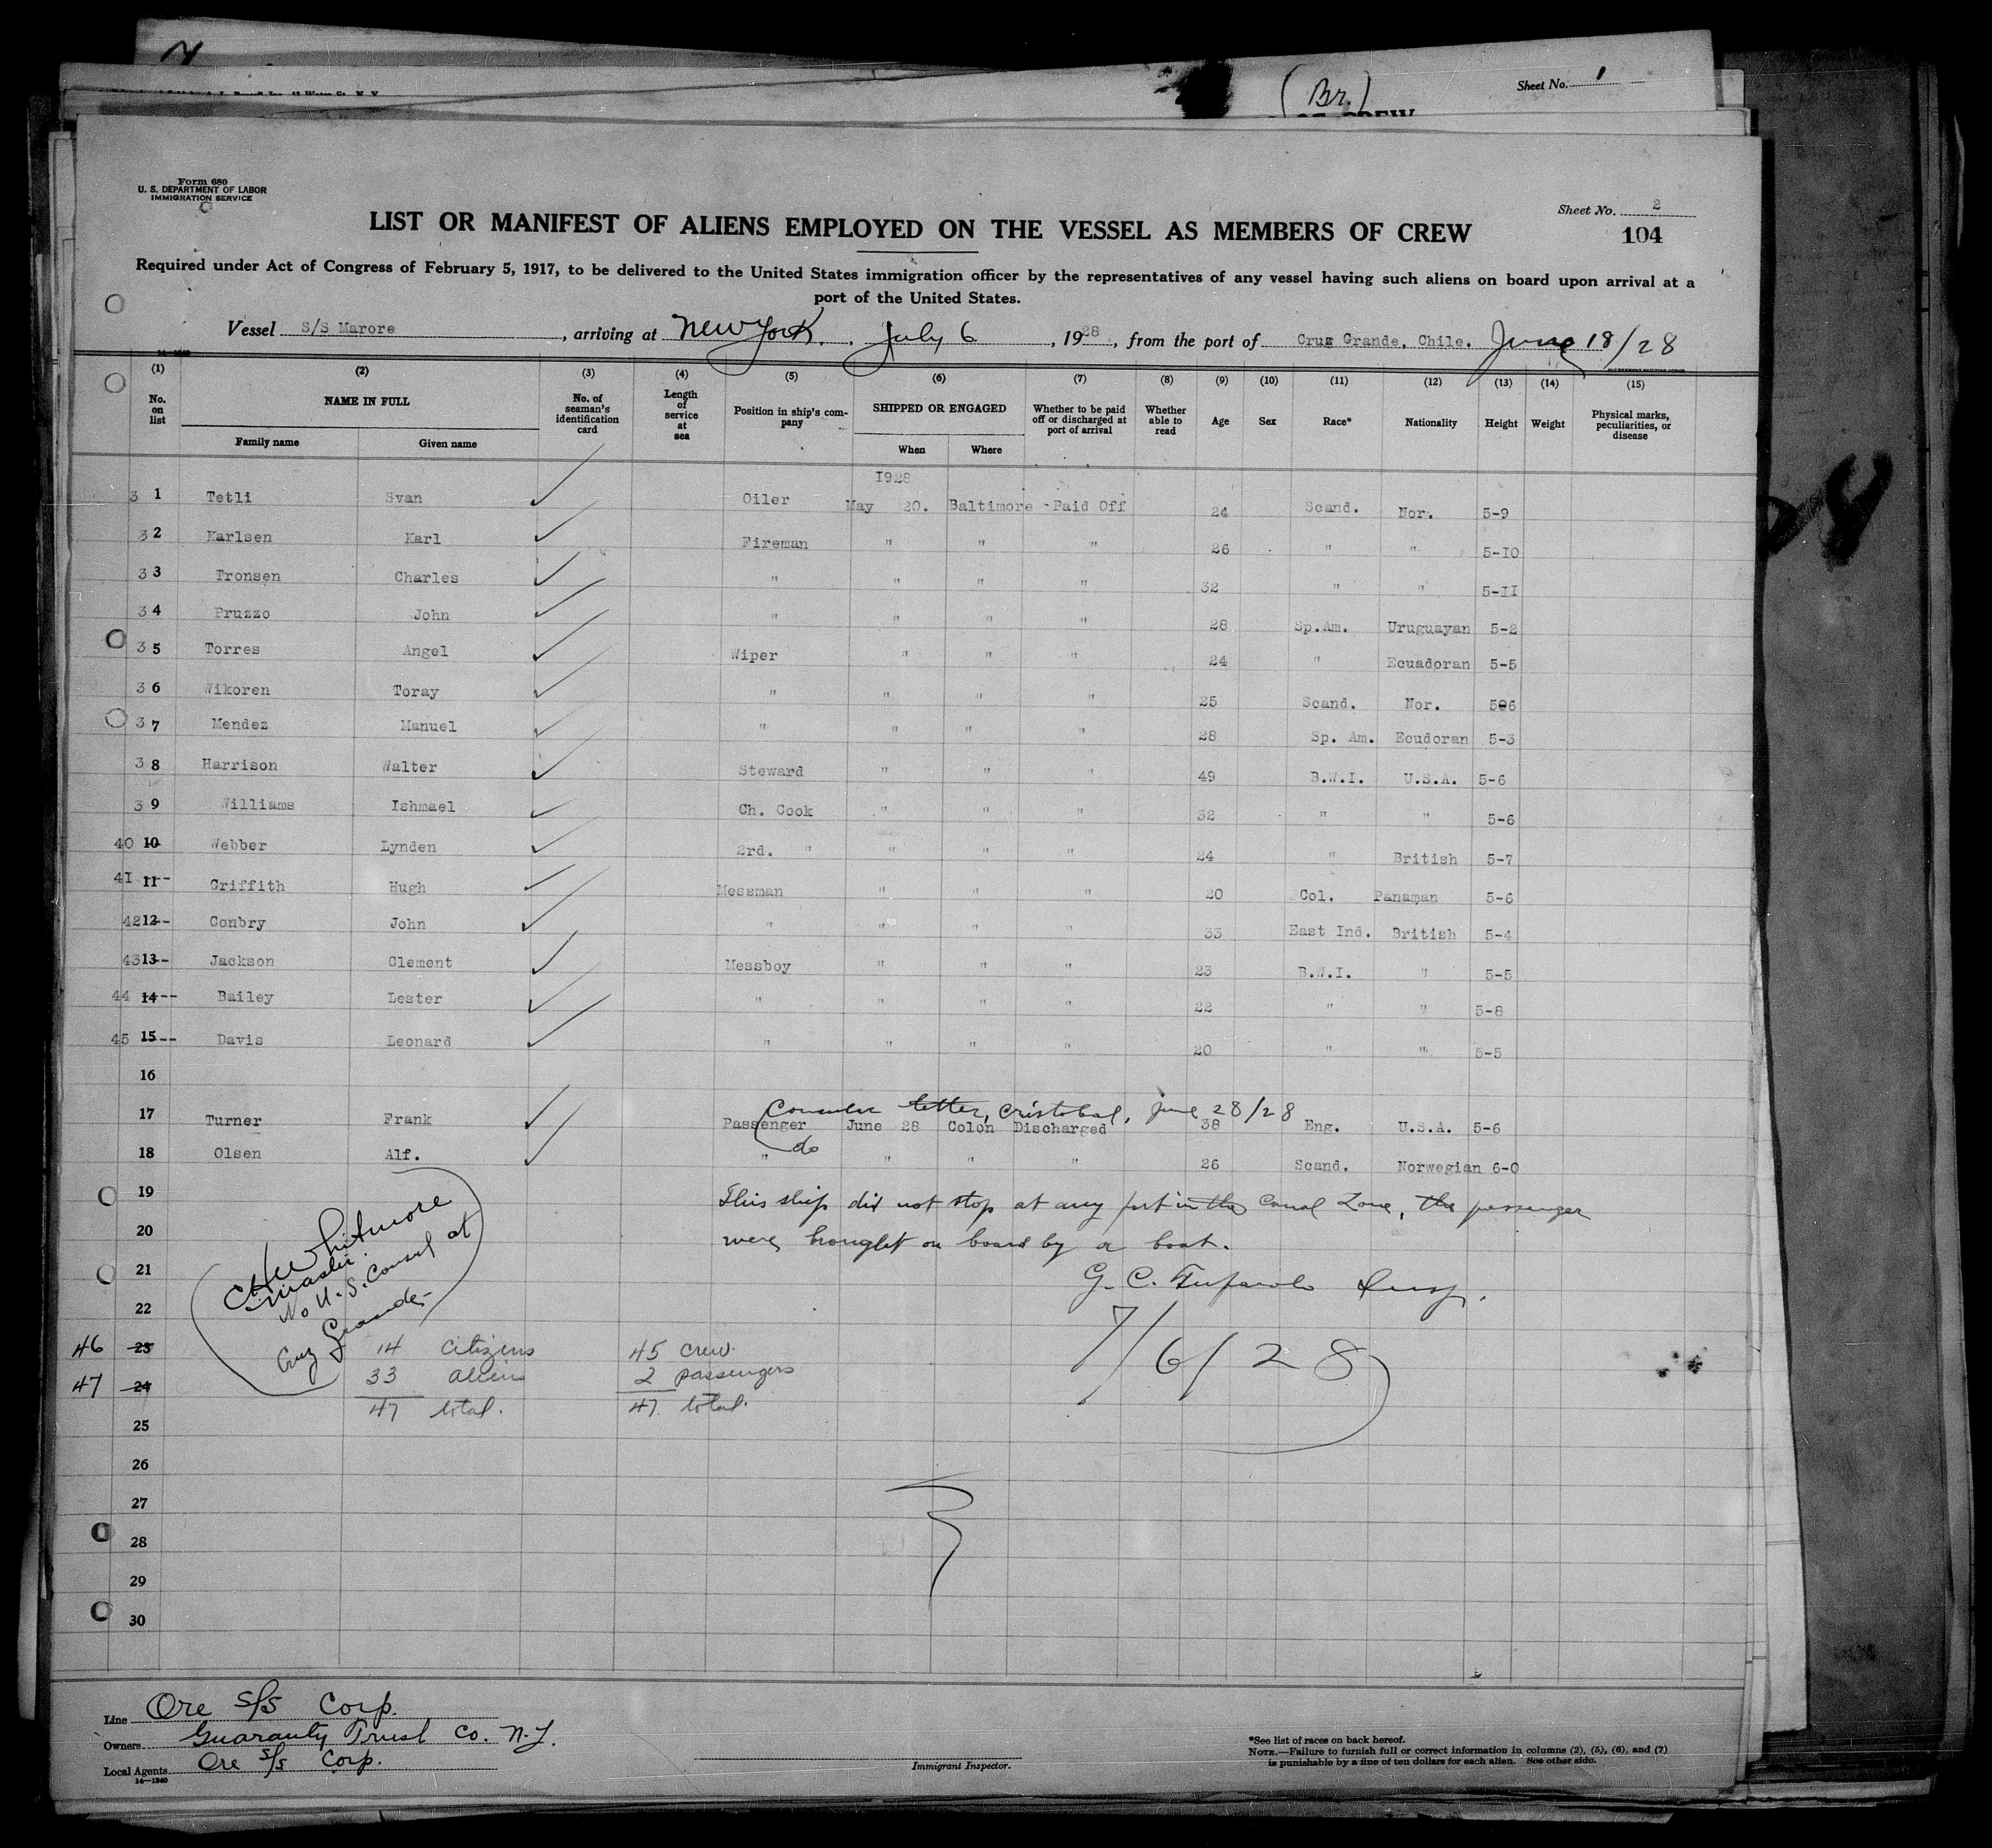 (Br.)
Sheet No. 1
Form 680
U. S. DEPARTMENT OF LABOR
IMMIGRATION SERVICE
Sheet No. 2
104
LIST OR MANIFEST OF ALIENS EMPLOYED ON THE VESSEL AS MEMBERS OF CREW
Required under Act of Congress of February 5, 1917, to be delivered to the United States immigration officer by the representatives of any vessel having such aliens on board upon arrival at a
port of the United States.
Vessel S/S Marore, arriving at New York, July 6, 1928, from the port of Cruz Grande, Chile. June 18/28
14-1240
(1) (2) (3) (4) (5) (6) (7) (8) (9) (10) (11) (12) (13) (14) (15)
No. on list NAME IN FULL No. of seaman's identification card Length of service at sea Position in ship's company SHIPPED OR ENGAGED Whether to be paid off or discharged at port of arrival Whether able to read Age Sex Race* Nationality Height Weight Physical marks, peculiarities, or disease
Family name Given name When Where
1928
3 1 Tetli Svan Oiler May 20. Baltimore -Paid Off 24 Scand. Nor. 5-9
3 2 Karlsen Karl Fireman " " " 26 " " 5-10
3 3 Tronsen Charles " " " " 32 " " 5-11
3 4 Pruzzo John " " " " 28 Sp.Am. Uruguayan 5-2
3 5 Torres Angel Wiper " " " 24 " Ecuadoran 5-5
3 6 Wikoren Toray " " " " 25 Scand. Nor. 506
3 7 Mendez Manuel " " " " 28 Sp. Am. Ecudoran 5-3
3 8 Harrison Walter Steward " " " 49 B.W.I. U.S.A. 5-6
3 9 Williams Ishmael Ch. Cook " " " 32 " " 5-6
40 10 Webber Lynden 2rd. " " " " 24 " British 5-7
41 11-- Griffith Hugh Messman " " " 20 Col. Panaman 5-6
42 12-- Conbry John " " " " 33 East Ind. British 5-4
43 13-- Jackson Clement Messboy " " " 23 B.W.I. " 5-5
44 14-- Bailey Lester " " " " 22 " " 5-8
45 15-- Davis Leonard " " " " 20 " " 5-5
16
Consular letter, Cristobal, June 28/28
17 Turner Frank Passenger June 28 Colon Discharged 38 Eng. U.S.A. 5-6
do
18 Olsen Alf. " " " " 26 Scand. Norwegian 6-0
19 This ship did not stop at any port in the Canal Zone, the passenger
20 were brought on board by a boat.
Whitmore
Master
No U.S. Consul at
Cruz Grande
21 G. C. Insp.
22
7/6/28
46 23 14 citizens 45 crew.
47 24 33 aliens 2 passengers
47 total. 47 total.
25
26
27
28
29
30
Line Ore S/S Corp.
Owners Guaranty Trust Co. N.Y.
Local Agents Ore S/S Corp.
14-1240
Immigrant Inspector.
*See list of races on back hereof.
NOTE.—Failure to furnish full or correct information in columns (2), (5), (6), and (7)
is punishable by a fine of ten dollars for each alien. See other side.